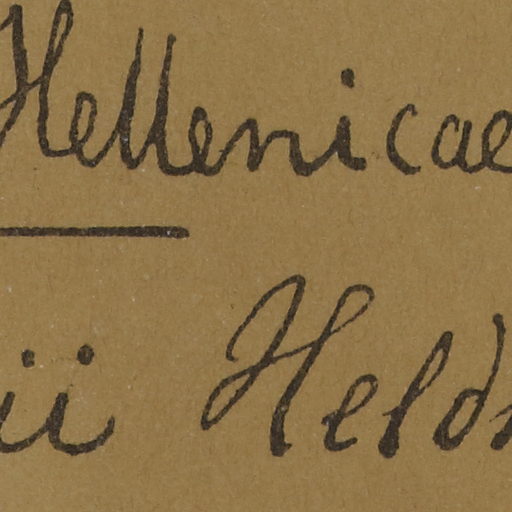 Hellenicae
ii Held